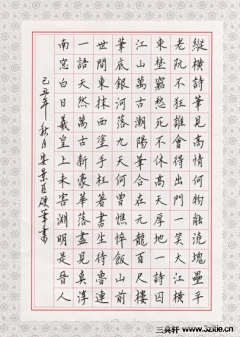 縱橫詩筆見高情何物能澆塊壘平
老阮不狂誰會得出門一笑大江橫
東埜窮愁死不休高天厚地一詩囚
江山萬古潮陽筆合在元龍百尺樓
筆底銀河落九天何曾憔悴飯山前
世間東抹西塗手枉著書生待魯連
一語天然萬古新豪華落盡見真淳
南窓白日羲皇上未害淵明是晉人
己丑年秋月安景臣硬筆書